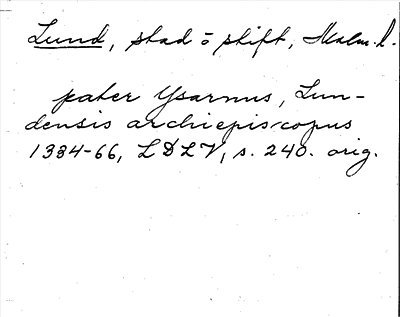 Lund, stad o stift, Malm. l.
pater Ysarnus, Lun-
densis archiepiscopus
1334-66, LDLV, s. 240. orig.